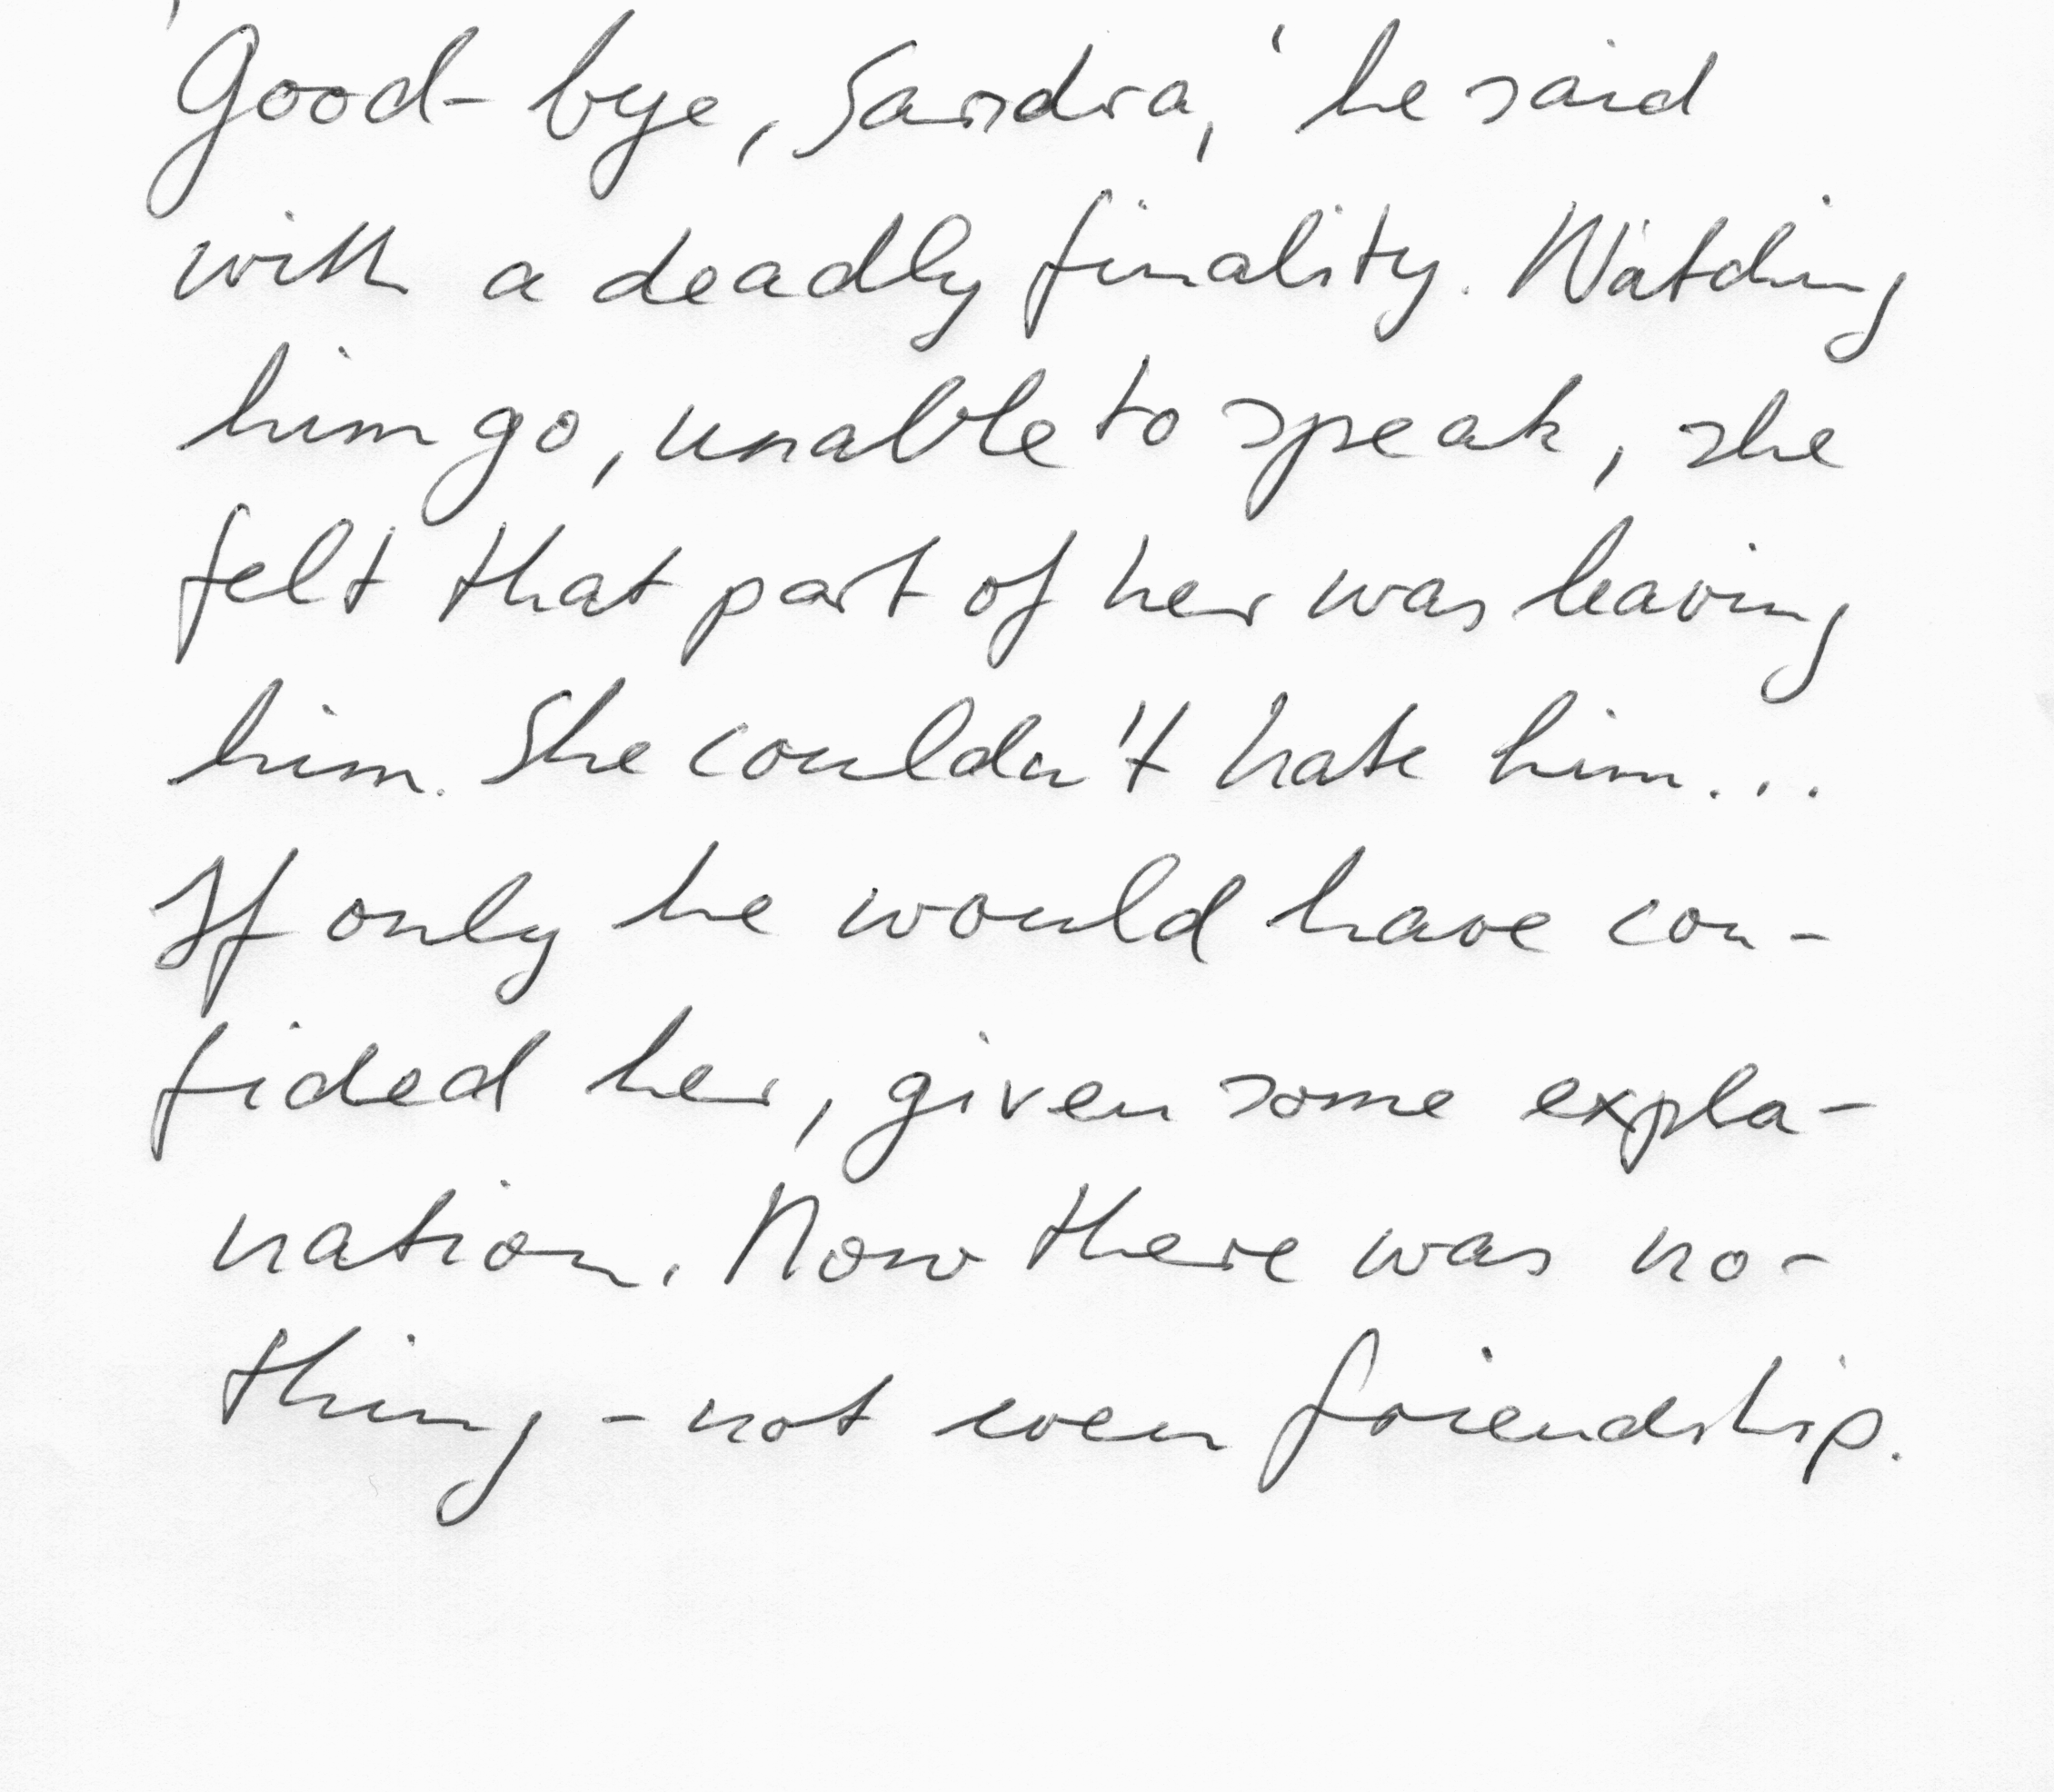 'Good-bye, Sandra,' he said
with a deadly finality. Watching
him go, unable to speak, she
felt that part of her was leaving
him. She couldn't hate him...
If only he would have con-
fided her, given some expla-
nation. Now there was no-
thing - not even friendship.